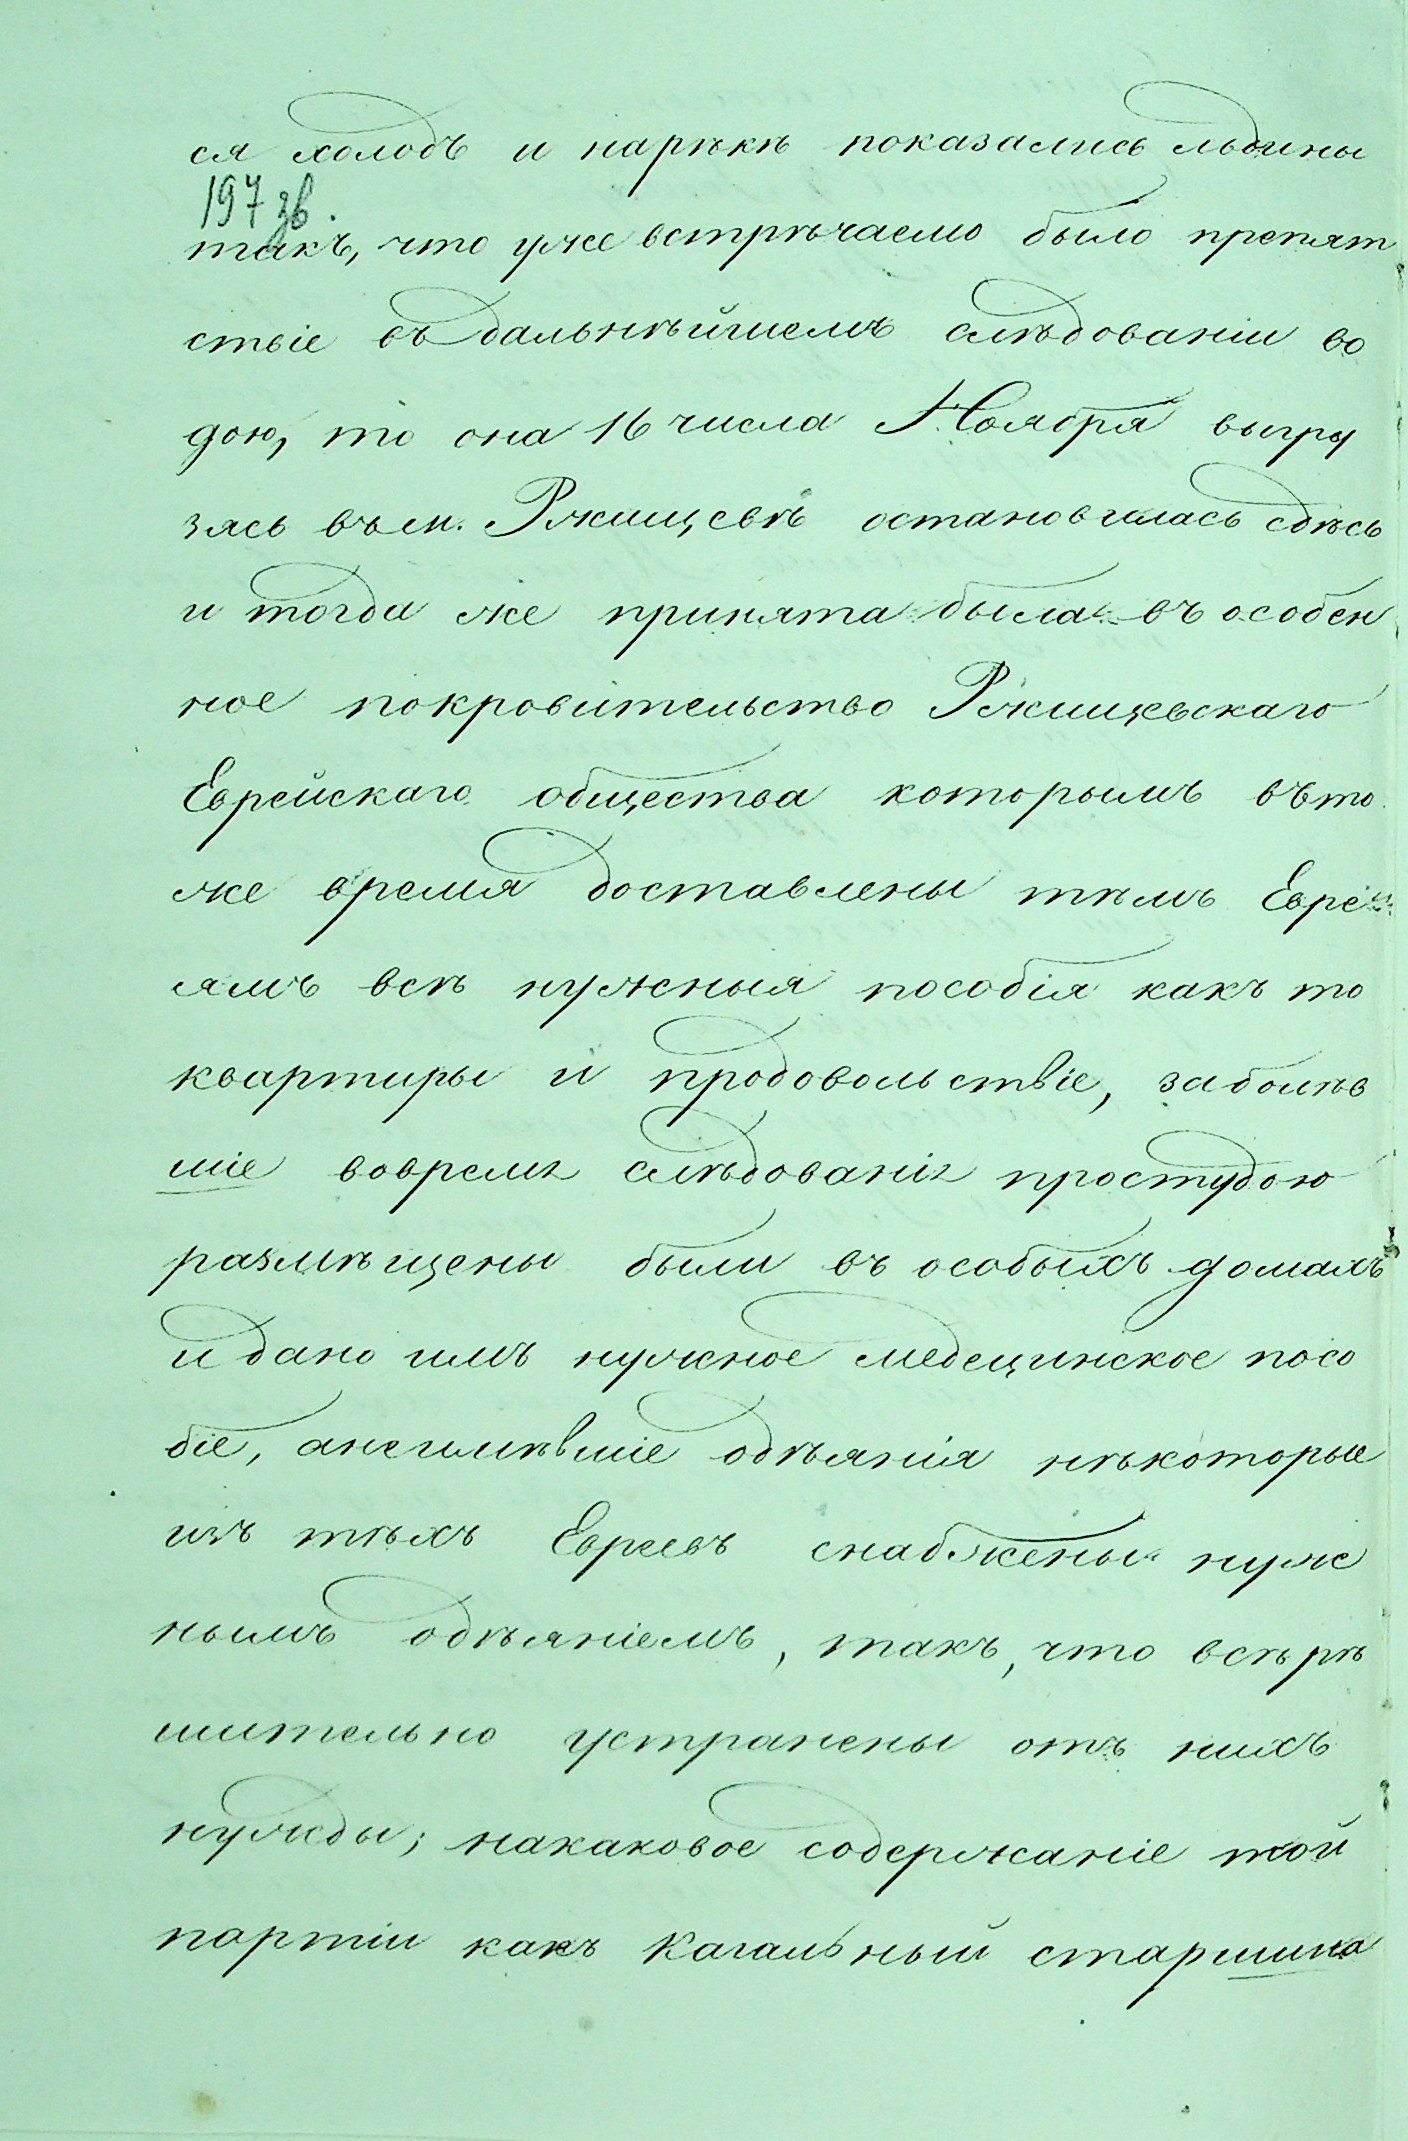 ся холодъ и нарѣкѣ показались льдины
197 зв.
такъ, что уже встрѣчаемо было препят
ствіе въ дальнѣйшемъ слѣдованіи во
дою, то она 16 числа Ноября выгру
зясь въ м. Ржищевѣ остановилась сдѣсь
и тогда же принята была въ особен
ное покровительство Ржищевскаго
Еврейскаго общества которымъ въ то
же время доставлены тѣмъ Евре
ямъ всѣ нужныя пособія какъ то
квартиры и продовольствіе, заболѣв
шіе вовремя слѣдованія простудою
размѣщены были въ особыхъ домахъ
и дано имъ нужное медецинское посо
біе, анеимѣвшіе одѣянія нѣкоторые
изъ тѣхъ Евреевъ снабжены нуж
нымъ одѣяніемъ, такъ, что всѣ рѣ
шительно устранены отъ нихъ
нужды; накаковое содержаніе той
партіи какъ Кагальный старшина